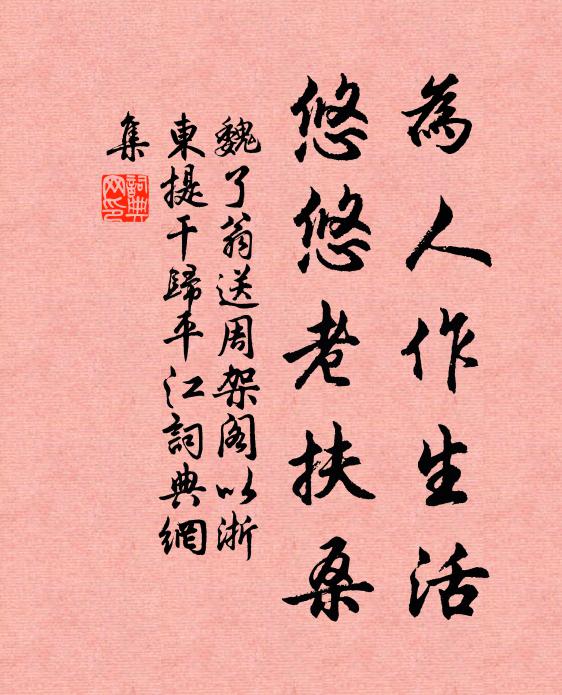 為人作生活
悠悠老扶桑
魏了翁送周架阁以浙
東提干歸平江詞典網
集
詞典
网印